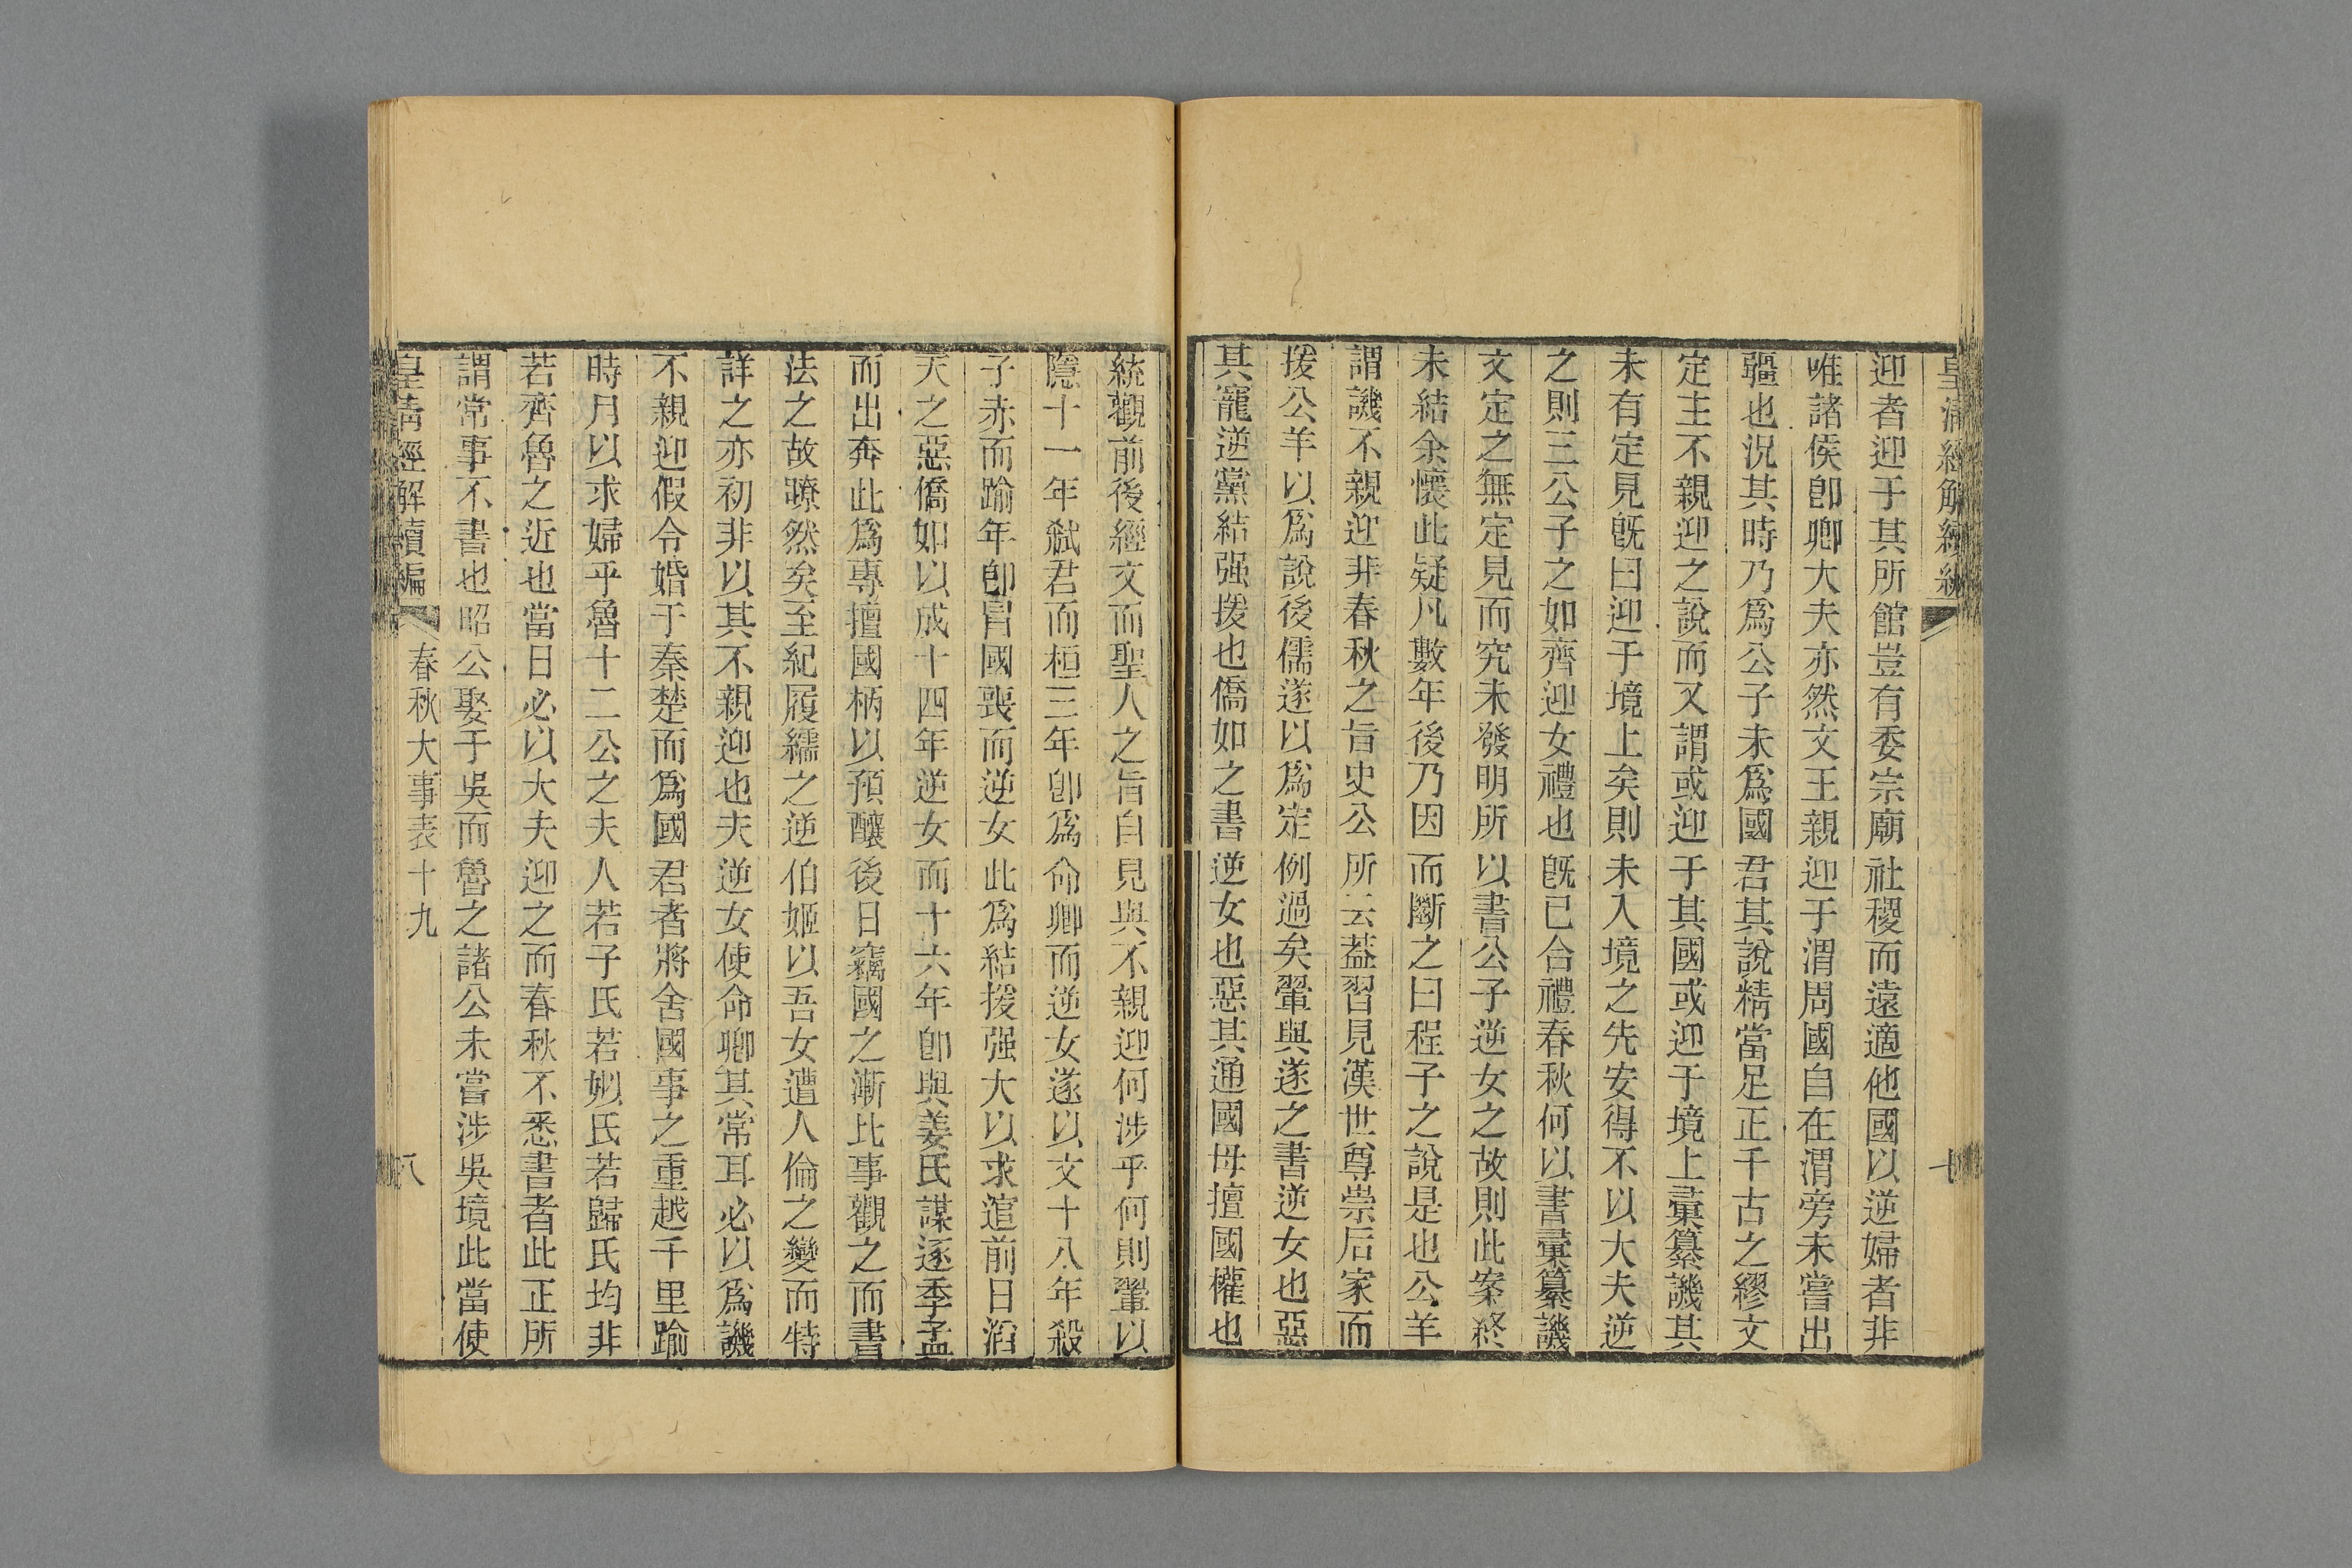 皇清經解續編
七
迎者迎于其所館豈有委宗廟社稷而遠適他國以逆婦者非
唯諸侯卽卿大夫亦然文王親迎于渭周國自在渭旁未嘗出
疆也況其時乃爲公子未爲國君其說精當足正千古之繆文
定主不親迎之說而又謂或迎于其國或迎于境上彙纂譏其
未有定見旣曰迎于境上矣則未入境之先安得不以大夫逆
之則三公子之如齊迎女禮也旣已合禮春秋何以書彙纂譏
文定之無定見而究未發明所以書公子逆女之故則此案終
未結余懷此疑凡數年後乃因而斷之曰程子之說是也公羊
謂譏不親迎非春秋之旨史公所云葢習見漢世尊崇后家而
援公羊以爲說後儒遂以爲定例過矣翬與遂之書逆女也惡
其寵逆黨結强援也僑如之書逆女也惡其通國母擅國權也
統觀前後經文而聖人之旨自見與不親迎何涉乎何則翬以
隱十一年弑君而桓三年卽爲命卿而逆女遂以文十八年殺
子赤而踰年卽冒國喪而逆女此爲結援强大以求逭前日滔
天之惡僑如以成十四年逆女而十六年卽與姜氏謀逐季孟
而出奔此爲專擅國柄以預釀後日竊國之漸比事觀之而書
法之故暸然矣至紀履繻之逆伯姬以吾女遭人倫之變而特
詳之亦初非以其不親迎也夫逆女使命卿其常耳必以爲譏
不親迎假令婚于秦楚而爲國君者將舍國事之重越千里踰
時月以求婦乎魯十二公之夫人若子氏若姒氏若歸氏均非
若齊魯之近也當日必以大夫迎之而春秋不悉書者此正所
謂常事不書也昭公娶于吳而魯之諸公未嘗涉吳境此當使
皇清經解續編
春秋大事表十九
八